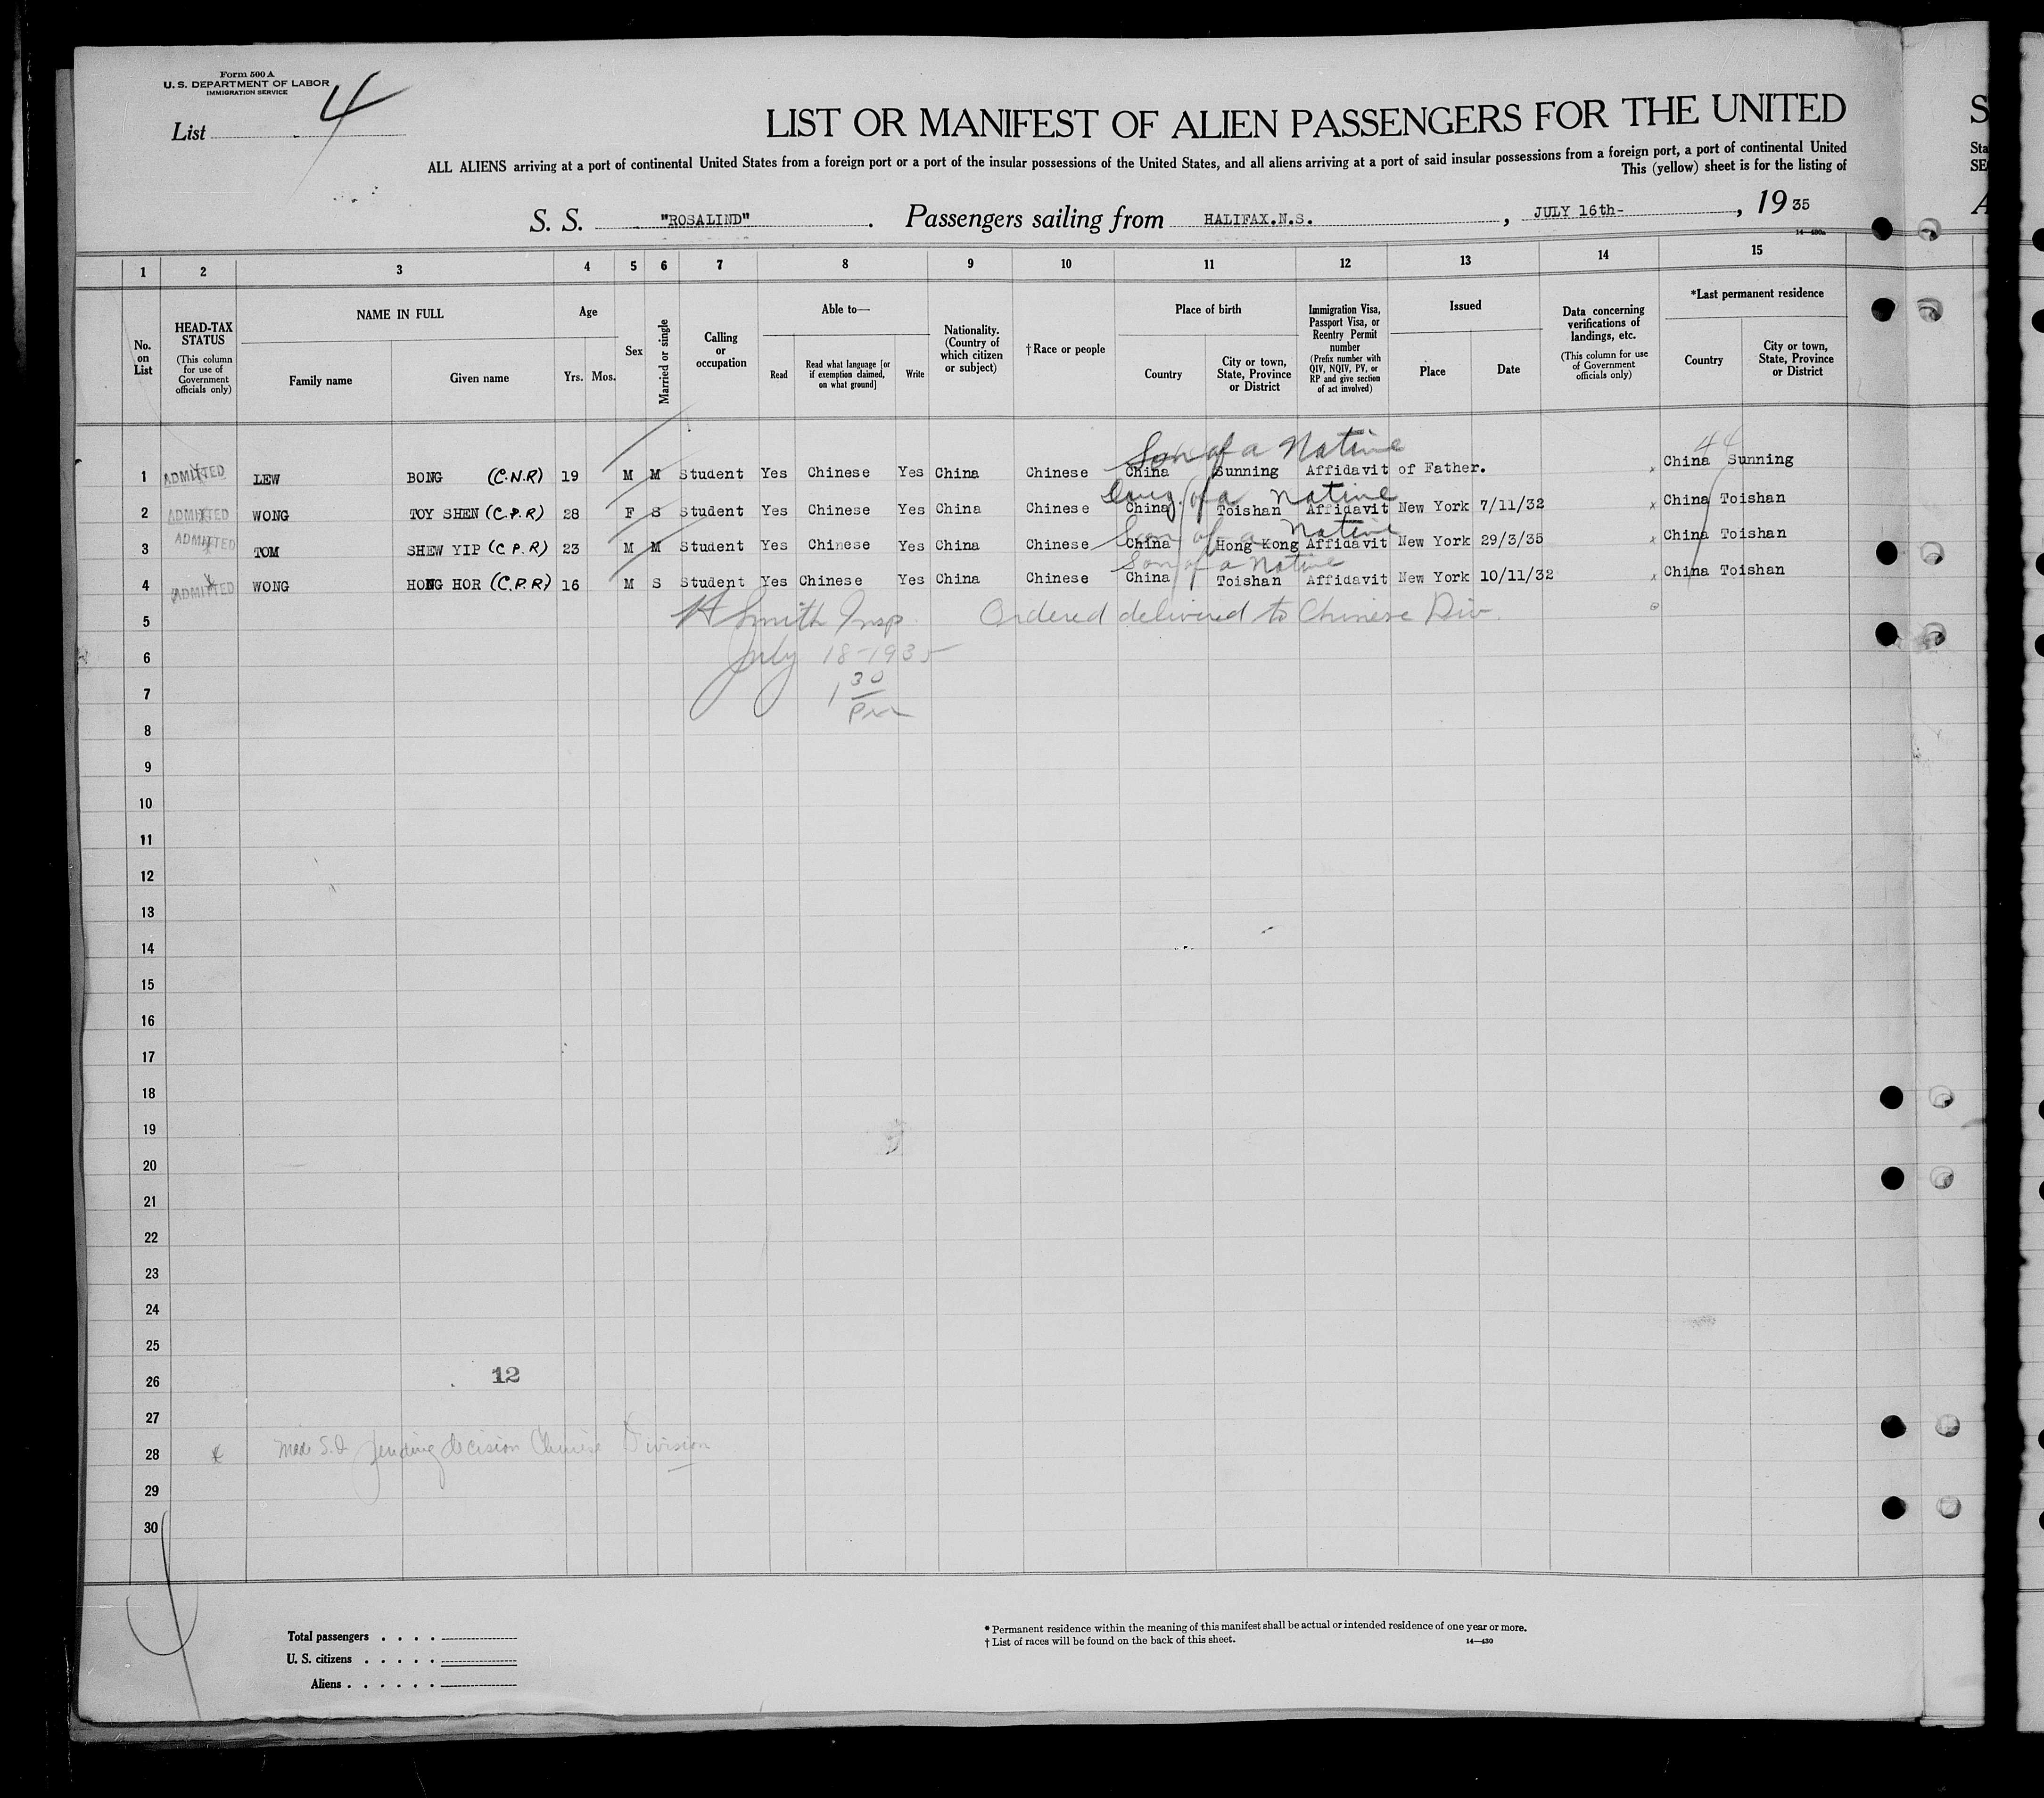 Form 500 A
U. S. DEPARTMENT OF LABOR
IMMIGRATION SERVICE
List 4
LIST OR MANIFEST OF ALIEN PASSENGERS FOR THE UNITED
ALL ALIENS arriving at a port of continental United States from a foreign port or a port of the insular possessions of the United States, and all aliens arriving at a port of said insular possessions from a foreign port, a port of continental United
This (yellow) sheet is for the listing of
S. S. "ROSALIND". Passengers sailing from HALIFAX.N.S., JULY 16th-, 19 35
14—430a
1 2 3 4 5 6 7 8 9 10 11 12 13 14 15
No. on List
HEAD-TAX STATUS (This column for use of Government officials only)
NAME IN FULL
Family name Given name
Age
Yrs. Mos.
Sex
Married or single
Calling or occupation
Able to—
Read Read what language [or if exemption claimed, on what ground] Write
Nationality. (Country of which citizen or subject)
†Race or people
Place of birth
Country City or town, State, Province or District
Immigration Visa, Passport Visa, or Reentry Permit number (Prefix number with QIV, NQIV, PV, or RP and give section of act involved)
Issued
Place Date
Data concerning verifications of landings, etc. (This column for use of Government officials only)
*Last permanent residence
Country City or town, State, Province or District
Son of a Native
1 ADMITTED LEW BONG (C.N.R) 19 M M Student Yes Chinese Yes China Chinese China Sunning Affidavit of Father. x China Sunning
Daug. of a native
2 ADMITTED WONG TOY SHEN (C.P.R) 28 F S Student Yes Chinese Yes China Chinese China Toishan Affidavit New York 7/11/32 x China Toishan
Son of a Native
3 ADMITTED TOM SHEW YIP (C.P.R) 23 M M Student Yes Chinese Yes China Chinese China Hong Kong Affidavit New York 29/3/35 x China Toishan
Son of a Native
4 ADMITTED WONG HONG HOR (C.P.R) 16 M S Student Yes Chinese Yes China Chinese China Toishan Affidavit New York 10/11/32 x China Toishan
5 H Smith Insp. Ordered delivered to Chinese Div.
6 July 18-1935
7 1 30 PM
8
9
10
11
12
13
14
15
16
17
18
19
20
21
22
23
24
25
26 12
27
28 x Made S.I pending decision Chinese Division
29
30
Total passengers . . . .
U. S. citizens . . . . .
Aliens . . . . . .
* Permanent residence within the meaning of this manifest shall be actual or intended residence of one year or more.
† List of races will be found on the back of this sheet.
14—430